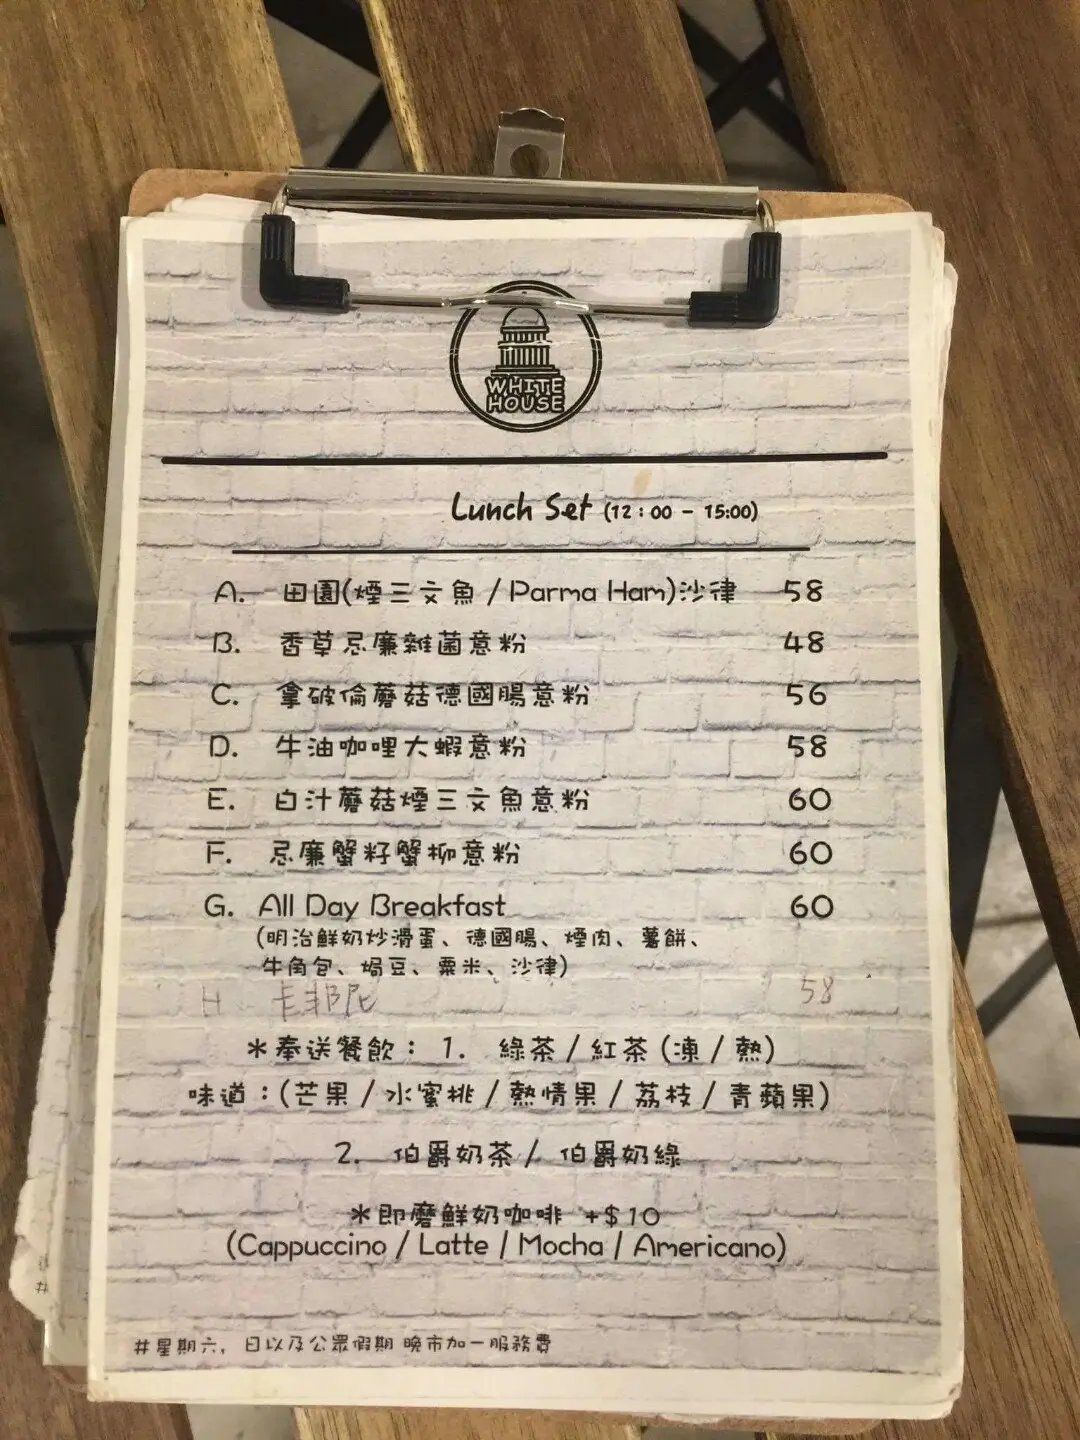 WHITE
HOUSE
Lunch Set (12:00 - 15:00)
A. 田園(煙三文魚 / Parma Ham)沙律 58
B. 香草忌廉雜菌意粉 48
C. 拿破倫蘑菇德國腸意粉 56
D. 牛油咖哩大蝦意粉 58
E. 白汁蘑菇煙三文魚意粉 60
F. 忌廉蟹籽蟹柳意粉 60
G. All Day Breakfast 60
(明治鮮奶炒滑蛋、德國腸、煙肉、薯餅、
牛角包、焗豆、粟米、沙律)
H 卡邦尼 58
*奉送餐飲: 1. 綠茶 / 紅茶 (凍 / 熱)
味道:(芒果 / 水蜜桃 / 熱情果 / 荔枝 / 青蘋果)
2. 伯爵奶茶 / 伯爵奶綠
*即磨鮮奶咖啡 +$10
(Cappuccino / Latte / Mocha / Americano)
#星期六, 日以及公眾假期 晚市加一服務費